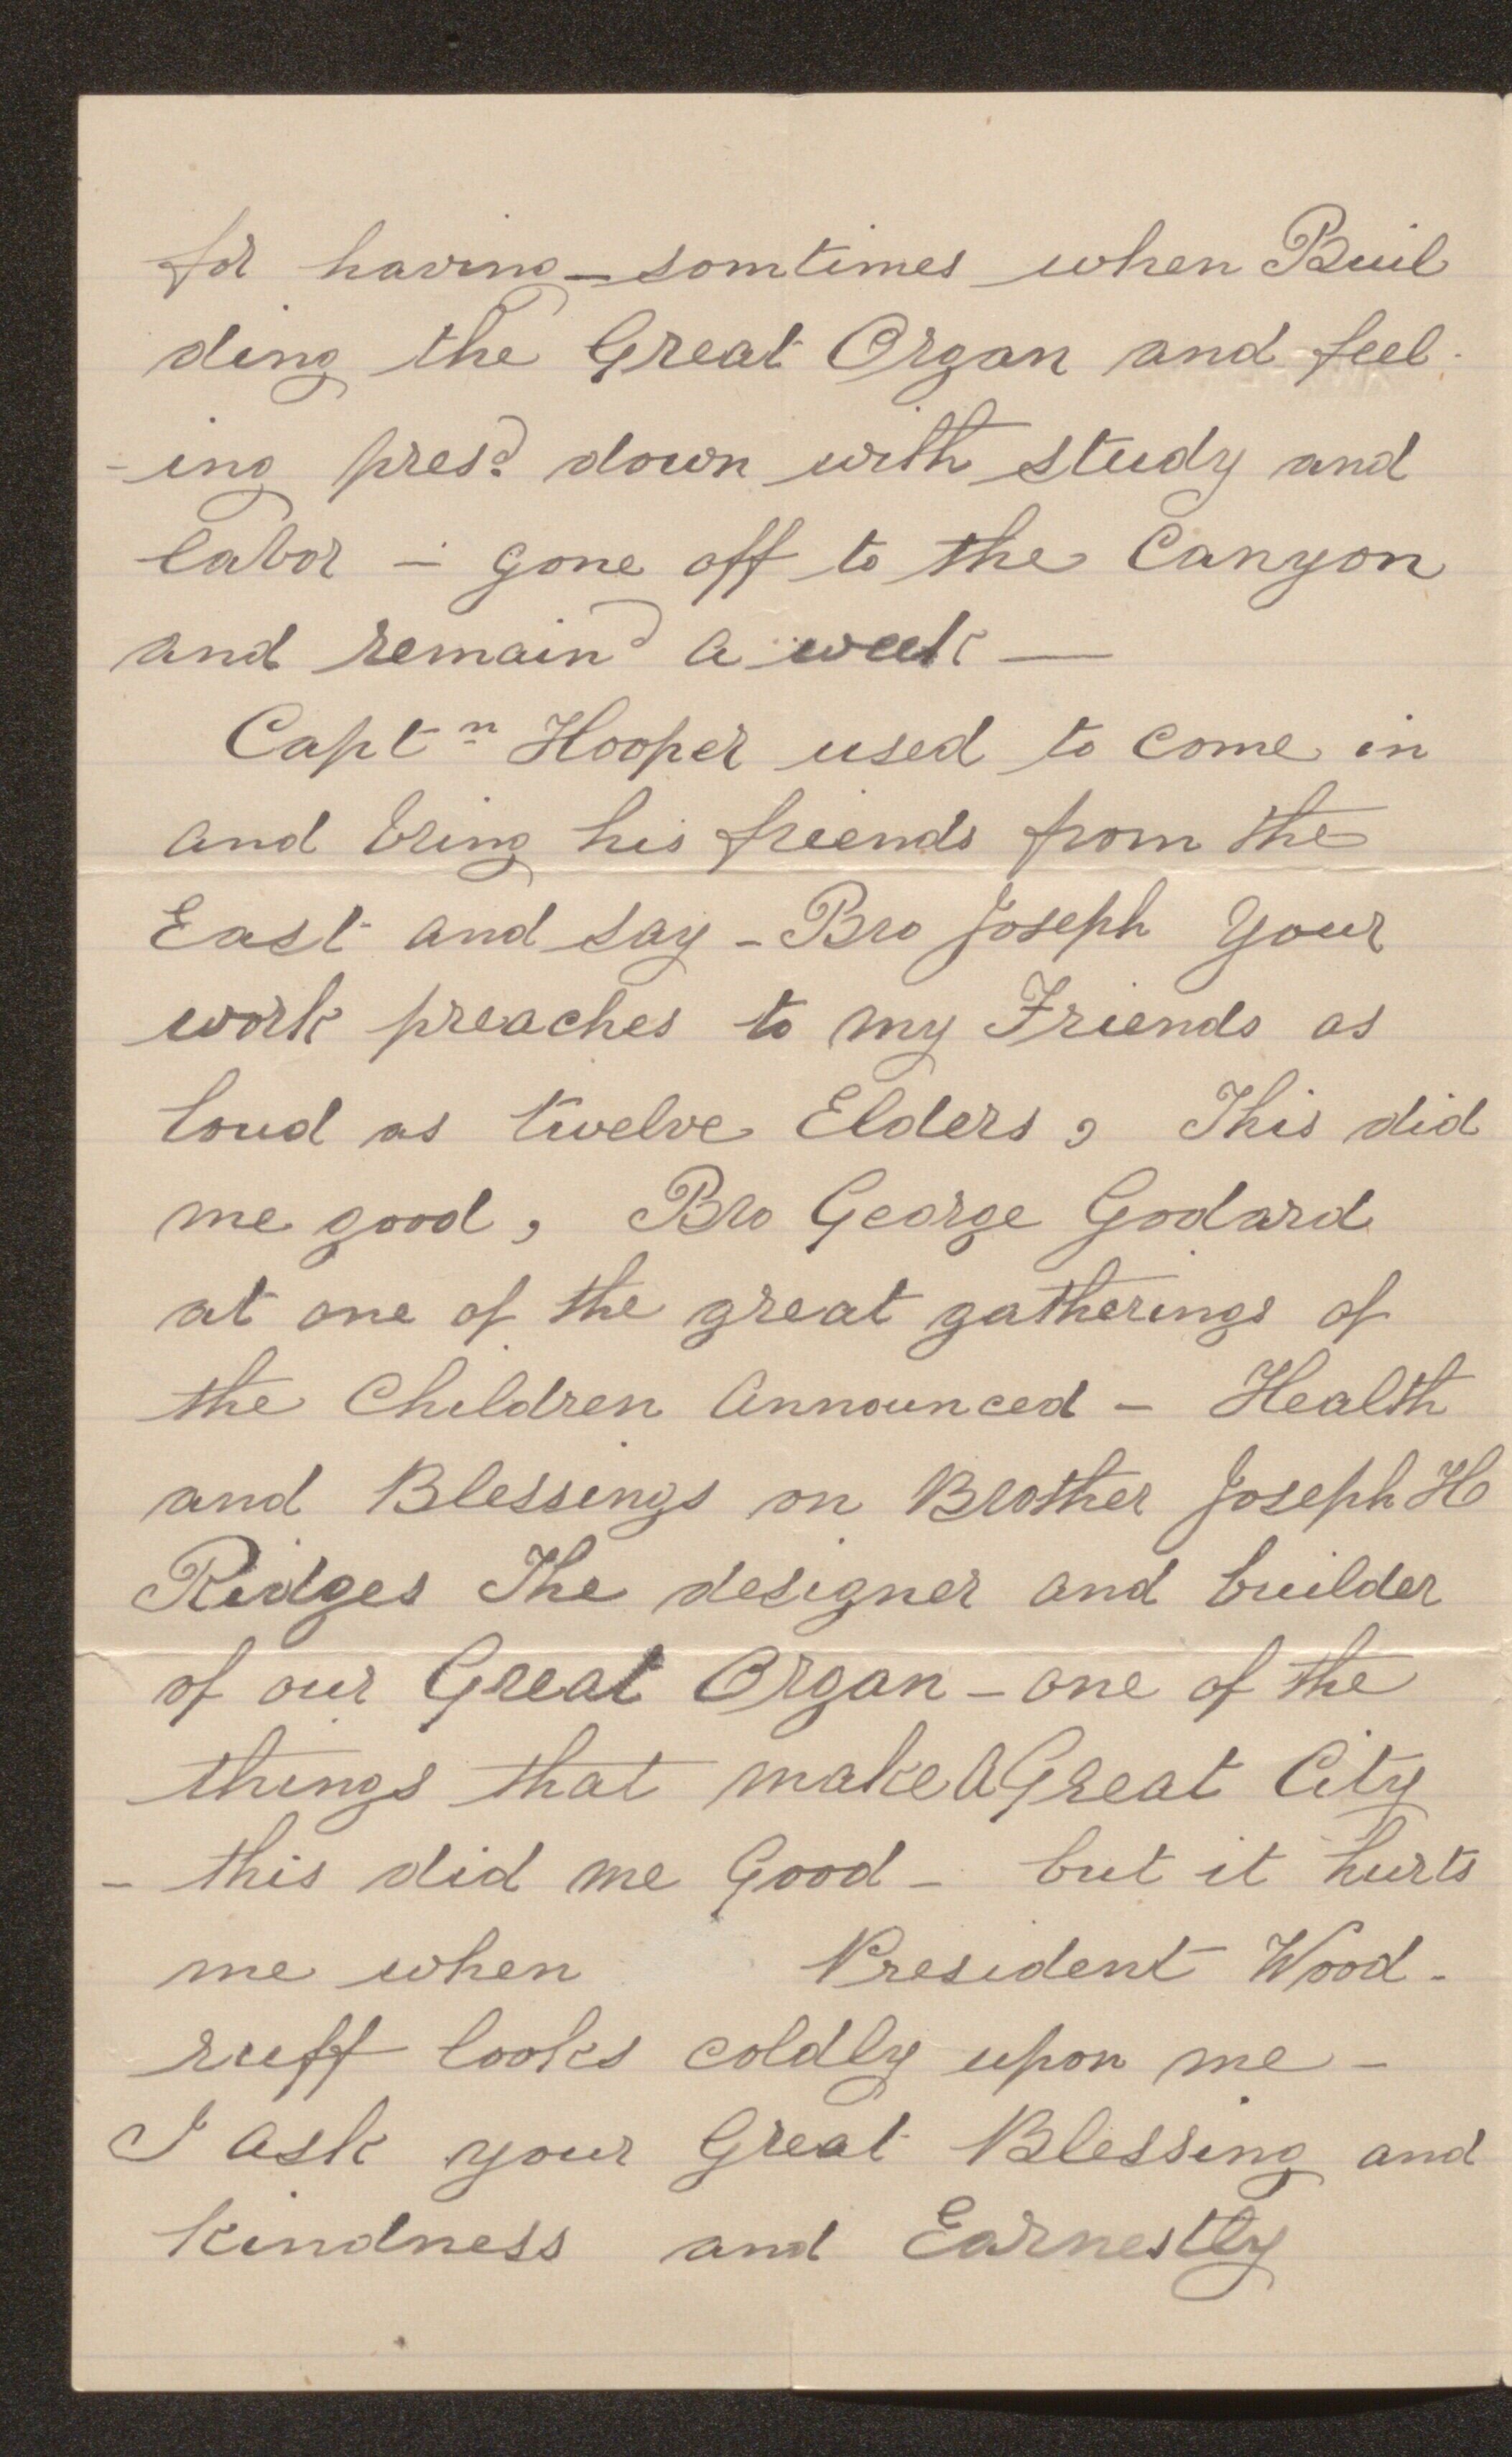 for having - somtimes when Buil
ding the Great Organ and feel-
-ing presd down with study and
labor - gone off to the Canyon
and remaind a week —
Captn Hooper used to come in
and bring his friends from the
East and say - Bro Joseph Your
work preaches to my Friends as
loud as twelve Elders, This did
me good, Bro George Godard
at one of the great gatherings of
the Children Announced - Health
and Blessings on Brother Joseph H
Ridges The designer and builder
of our Great Organ - one of the
things that make A Great City
- this did me Good - but it hurts
me when President Wood-
ruff looks coldly upon me -
I ask your Great Blessing and
kindness and Earnestly